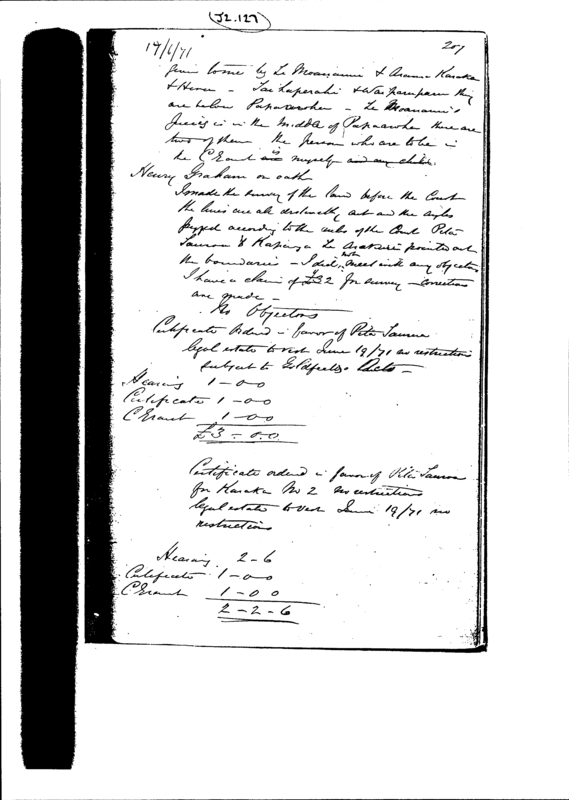 J2.127
19/6/71
207
given to me by Te Moananui & Arama Karaka
& Hera - Taihaperahi & Waiparapara they
are below Papaaroha - Te Moananui's
piece is in the middle of Papaaroha there are
two of them the person who are to be in
the C Grant is myself and my child.
Henry Graham on oath
I made the survey of the land before the Court
the lines are all distinctly cut and the angles
pegged according to the rules of the Court Pita
Taurua & Te pointed out
the boundaries - I did not meet with any objectors
I have a claim of £32 for survey - corrections
are made -
No Objectors
Certificate Ordered in favor of Pita Taurua
legal estate to vest June 19/71 no restrictions
subject to Goldfields Acts -
Hearing 1-0-0
Certificate 1-0-0
C Grant 1-0-0
£3-0.0.
Certificate ordered in favor of Pita Taurua
for Karaka No 2 no restrictions
legal estate to vest June 19/71 no
restrictions
Hearing 2-6
Certificate 1-0-0
C Grant 1-0-0
2-2-6